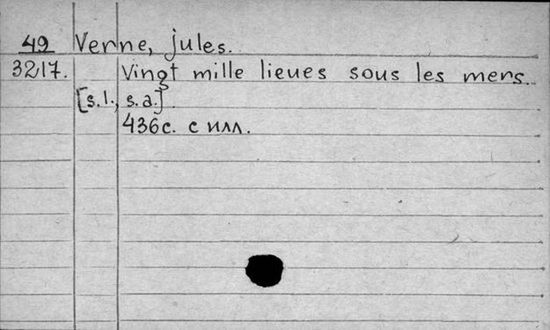 49 Verne, jules.
3217. Vingt mille lieues sous les mers.
[s.l., s.a.]
436с. с илл.